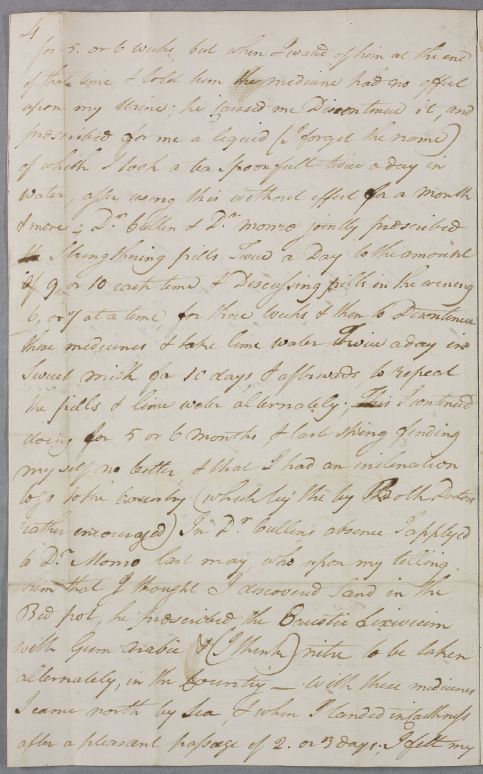 4
for 5. or 6 weeks, but when I waited of him at the end
of that time & told him the medicine had no effect
upon my Urine; he caused me Discontinue it, and
prescribed for me a liquid (I forget the name)
of which I took a tea Spoonfull twice a day in
water, after using this without effect for a month
& more; Dr Cullen & Dr Monro jointly prescribed
Strengthning pills Twice a Day to the amount
of 9 or 10 each time & Discussing pills in the evening
6, or 7 at a time, for three weeks & then to Discontinue
these medicines & take lime water Twice a day in
Sweet milk for 10 days, & afterwards, to repeat
the pills & lime water alternately; This I continued
doing for 5 or 6 months & last spring finding
myself no better, & that I had an inclination
to go to the Country (which by the by Both Doctors
rather encouraged) In Dr Cullen's absence I applyed
to Dr Monro last may, who upon my telling
him that I thought I discovered Sand in the
Bed pot, he prescribed the Caustic Lixivium
with Gum Arabic & (I think) nitre to be taken
alternately, in the Country — with these medicines
I came north by Sea, & when I landed in Caithness
after a pleasant passage of 2. or 3 days; I felt my